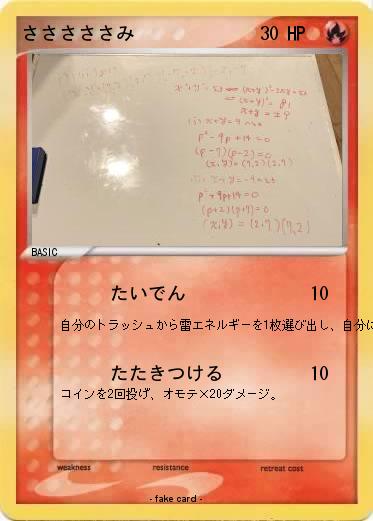 ささささささみ 30 HP
(x+y)²-2xy=53
(x+y)²=81
x+y=±9
(i) x+y=9
p²-9p+14=0
(p-7)(p-2)=0
(x,y)=(7,2)(2,7)
p²+9p+14=0
(p+2)(p+7)=0
BASIC
たいでん 10
自分のトラッシュから雷エネルギーを1枚選び出し、自分に
たたきつける 10
コインを2回投げ、オモテ×20ダメージ。
weakness resistance retreat cost
- fake card -